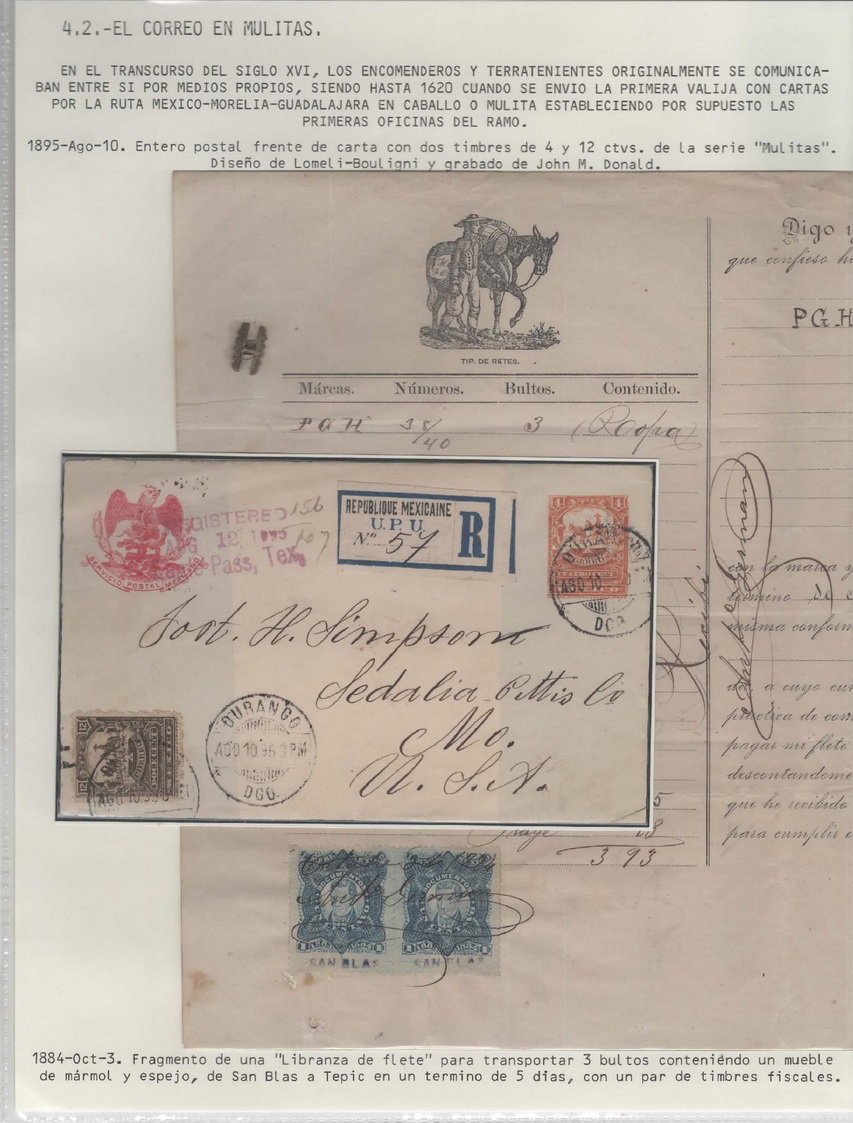 4.2.-EL CORREO EN MULITAS.
EN EL TRANSCURSO DEL SIGLO XVI, LOS ENCOMENDEROS Y TERRATENIENTES ORIGINALMENTE SE COMUNICA-
BAN ENTRE SI POR MEDIOS PROPIOS, SIENDO HASTA 1620 CUANDO SE ENVIO LA PRIMERA VALIJA CON CARTAS
POR LA RUTA MEXICO-MORELIA-GUADALAJARA EN CABALLO O MULITA ESTABLECIENDO POR SUPUESTO LAS
PRIMERAS OFICINAS DEL RAMO.
1895-Ago-10. Entero postal frente de carta con dos timbres de 4 y 12 ctvs. de la serie "Mulitas".
Diseño de Lomeli-Bouligni y grabado de John M. Donald.
Digo y
que confieso ha
PGH
TIP. DE RETES.
Márcas. Números. Bultos. Contenido.
PGH 38/40 3 (Ropa)
SERVICIO POSTAL MEXICANO
GISTERED
12 1895
Pass, Tex.
156
107
REPUBLIQUE MEXICAINE
U.P.U.
Nº 57
R
4 4
DURANGO
AGO 10
DGO.
Post. H. Simpson
Sedalia Pettis Co
Mo.
U. S. A.
12
AGO 10
DURANGO
AGO 10 95 3 PM
DGO.
Recibí
con la marca y
término de
misma conform
da, a cuyo cum
práctica de com
pagar mi flete
descontandome
que he recibido
para cumplir
5
18
3 93
DOCUMENTOS DOCUMENTOS
SAN BLAS SAN BLAS
1884-Oct-3. Fragmento de una "Libranza de flete" para transportar 3 bultos conteniéndo un mueble
de mármol y espejo, de San Blas a Tepic en un termino de 5 días, con un par de timbres fiscales.